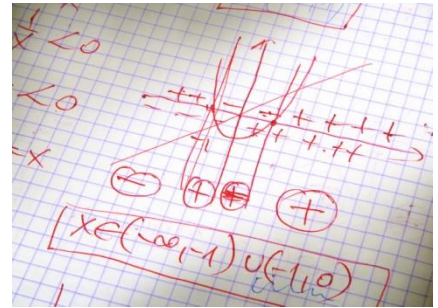 x < 0
< 0
= x
++ - + + + + +
-1 + + + +
- + + +
x ∈ (-∞, -1) ∪ (-1, 0)